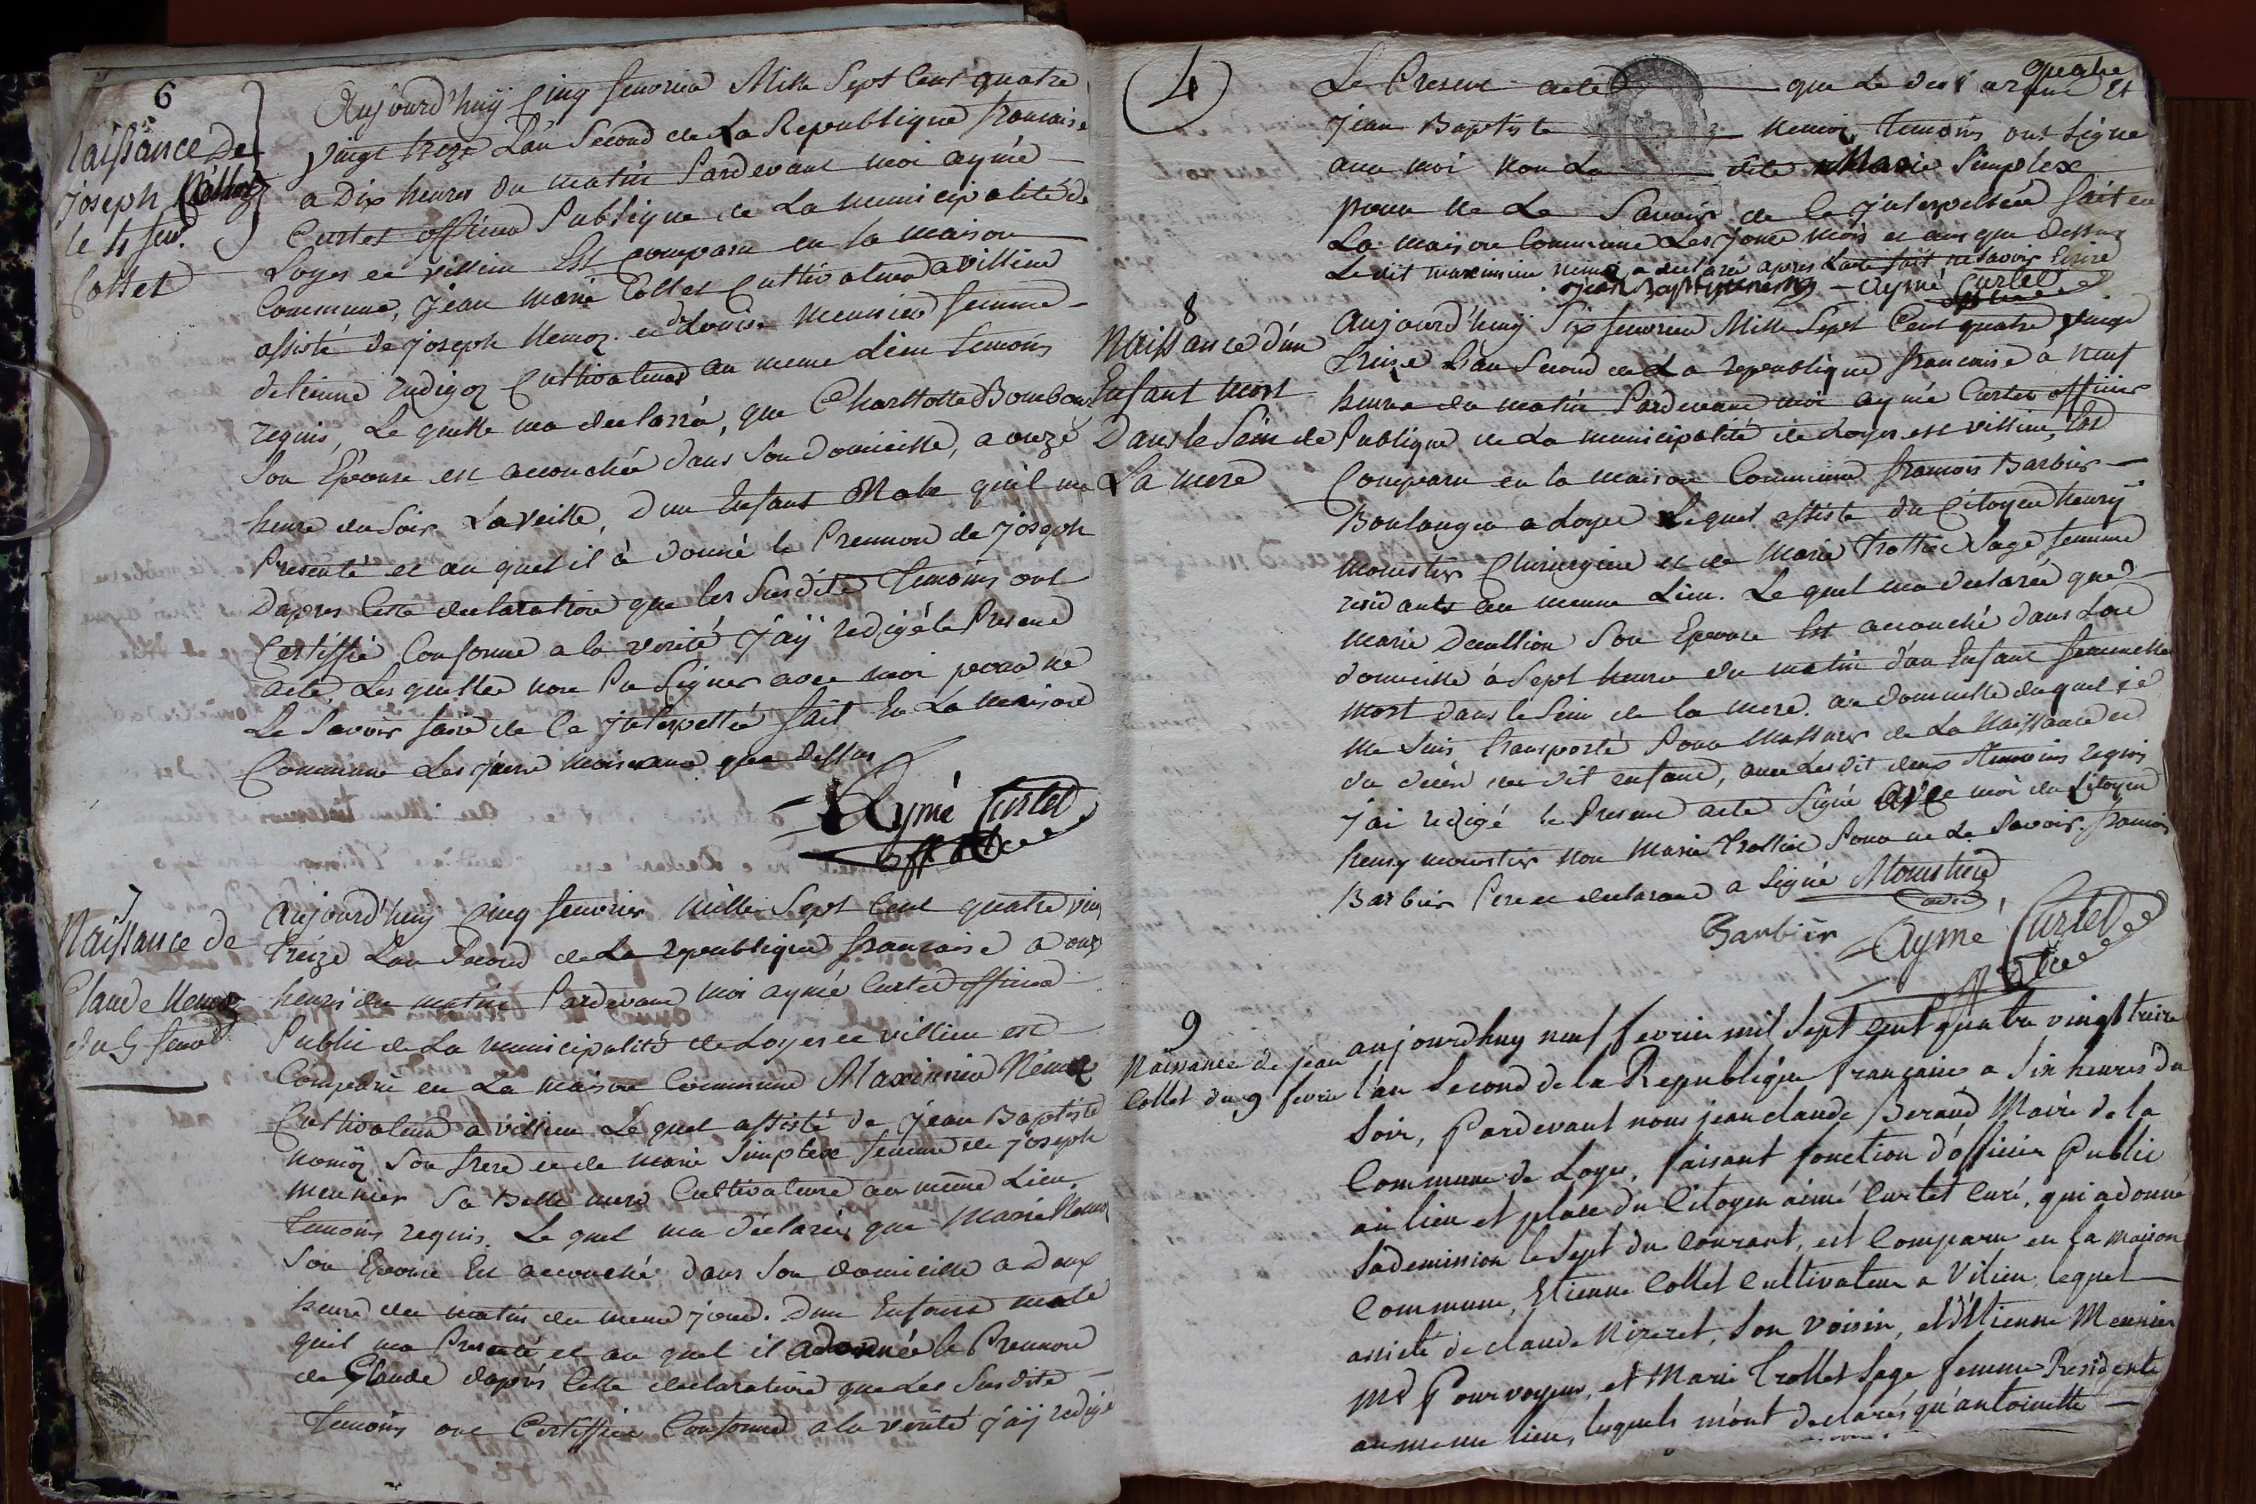 6
Naissance De
Joseph Collet
le 4 fev.
Collet
Aujourd'huÿ Cinq fevrier Mille Sept Cent quatre
vingt treze L'an Second de La Republique francaise
a Dix heures du matin Pardevant moi aymé
Curtet officier Publique de La municipalité de
Loyes et villieu Est comparu en la maison
Commune, Jean marie Collet Cultivateur a villieu
assisté de joseph Nemoz et de Louise meunier femme
detienne rudigoz Cultivateur au meme Lieu temoins
requis, Le quelle ma declarré, que Charllotte Bombour
Son Epouse est accouchée dans Son domicille, a onze
heure du soir La veille, d'un Enfant Male qu'il ma
Presenté et au quel il à donné le Prennom de joseph
Dapres Cette declaration que les Susdite temoins ont
Certiffié Conforme a la verité j'aÿ redigé le Present
acte Les quelle non Pu Signer avec moi pour ne
Le Savoir faire de Ce jnterpellée fait En La Maison
Commune Les jours mois et ans que dessus
Aymé Curtet
officier
7
Naissance de
Claude Nemoz
du 5 fevrier
Aujourd'huy Cinq fevrier mille Sept Cent quatre vin
treize L'an Second de La republique francaise a onze
heures du matin Pardevant moi aymé Curtet officier
Public de La municipalité de Loyes et villieu est
Comparu en La maison Commune Maximin Némoz
Cultivateur a villieu Le quel assisté de jean Baptiste
nemoz Son frere et de marie Simplex femme de joseph
meunier Sa Belle mere Cultivateur au même Lieu.
temoins requis. Le quel ma déclarée que Marie Nemoz
Son Epouse Est accouchée dans Son domicille a deux
heure du matin du meme jour. Dun Enfant male
quil ma Presenté et au quel il a donnée le Prennom
de Claude daprés Cette declaration que Les Susdite
temoins ont Certiffiée Conforme a la verité j'aÿ redigé
4
Le Present acte que Le declarant Et
quatre
Jean Baptiste Nemoz temoins ont Signé
avec moi non La dite Marie Simplex
pour ne Le Savoir de Ce jnterpellée fait en
La maison Commune Les jour mois et ans que dessus
Le dit maximin nemoz a declaré apres Lacte fait ne Savoir Ecrire
jean Baptiste nemoz Aymé Curtet
officier
8
Naissance d'un
Enfant mort
Dans le Sein de
La mere
Aujourd'huy Six fevrier Mille Sept Cent quatre vingt
treize L'an Second de La republique francaise a neuf
heure du matin Pardevant moi aymé Curtet officier
Publique de La municipalité de Loyes et villieu, Est
Comparu en la maison Commune francois Barbier
Boulanger a Loyes Le quel assisté du Citoyen henry
mouster Chirurgien et de Marie trollier Sage femme
residants au meme Lieu. Le quel ma déclarée que
marie Son Epouse Est accouchée dans Son
domicille à Sept heure du matin d'un Enfant femmelle
mort dans le Sein de la mere. au domicille duquel je
me Suis transporté Pour massurer de La Naissance et
du decés du dit enfant, avec Les dit deux temoins requis
j'ai redigé le Present acte Signé avec moi du Citoyen
henry mouster non Marie trollier Pour ne Le Savoir. francois
Barbier Pere et declarant a Signé Mousther
Barbier Aymé Curtet
officier
9
Naissance de jean
Collet du 9 fevrier
aujourdhuy neuf fevrier mil Sept Cent quatre vingt treize
l'an Second de la Republique française a Six heures du
Soir, Pardevant nous jean claude Beraud Maire de la
Commune de Loyes, faisant fonction d'officier Public
au lieu et place du Citoyen aimé Curtet Curé, qui a donné
Sa demission le Sept du Courant, est Comparu en la maison
Commune, Etienne Collet Cultivateur a Vilieu, lequel
assisté de claude Nizeret, Son Voisin, et d'Etienne Meunier
md Pourvoyeur, et Marie Trollet Sage femme Residente
au meme lieu, lesquels m'ont declarés qu'antoinette